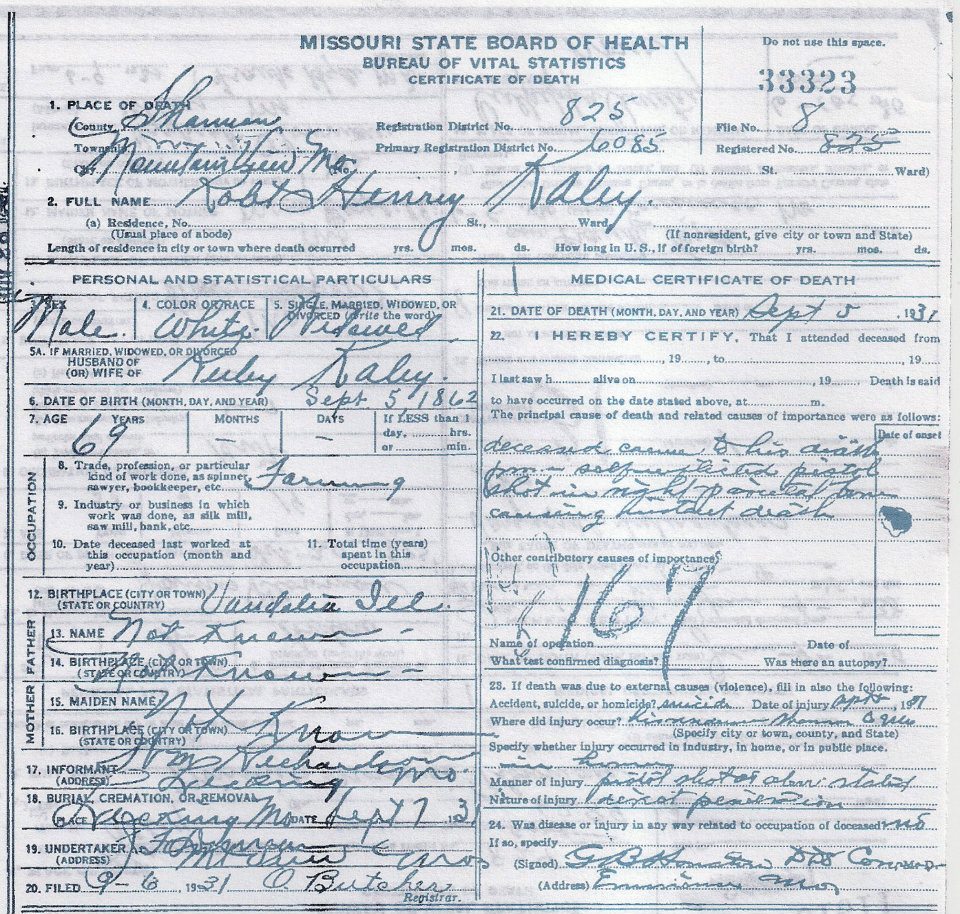 MISSOURI STATE BOARD OF HEALTH
BUREAU OF VITAL STATISTICS
CERTIFICATE OF DEATH
Do not use this space.
33323
1. PLACE OF DEATH
County Shannon Registration District No. 825 File No. 8
Township Primary Registration District No. 6085 Registered No. 825
City Mountain View Mo. (No. St. Ward)
2. FULL NAME Robt Henry Kaley.
(a) Residence, No. St., Ward.
(Usual place of abode) (If nonresident, give city or town and State)
Length of residence in city or town where death occurred yrs. mos. ds. How long in U.S., if of foreign birth? yrs. mos. ds.
PERSONAL AND STATISTICAL PARTICULARS
3. SEX 4. COLOR OR RACE 5. SINGLE, MARRIED, WIDOWED, OR DIVORCED (write the word)
Male. White. Widowed
5A. IF MARRIED, WIDOWED, OR DIVORCED
HUSBAND OF
(OR) WIFE OF Kaley
6. DATE OF BIRTH (MONTH, DAY, AND YEAR) Sept 5 1862
7. AGE YEARS MONTHS DAYS If LESS than 1
day, hrs.
or min.
69 - -
OCCUPATION
8. Trade, profession, or particular
kind of work done, as spinner,
sawyer, bookkeeper, etc. Farming
9. Industry or business in which
work was done, as silk mill,
saw mill, bank, etc.
10. Date deceased last worked at
this occupation (month and
year)
11. Total time (years)
spent in this
occupation
12. BIRTHPLACE (CITY OR TOWN)
(STATE OR COUNTRY) Vandalia Ill.
FATHER
13. NAME Not Known -
14. BIRTHPLACE (CITY OR TOWN)
(STATE OR COUNTRY) Not Known -
MOTHER
15. MAIDEN NAME Not Known
16. BIRTHPLACE (CITY OR TOWN)
(STATE OR COUNTRY)
17. INFORMANT Wm Richardson
(ADDRESS) Licking Mo.
18. BURIAL, CREMATION, OR REMOVAL
PLACE Licking Mo DATE Sept 7 1931
19. UNDERTAKER
(ADDRESS) Mo
20. FILED 9-6 1931 O. Butcher
Registrar.
MEDICAL CERTIFICATE OF DEATH
21. DATE OF DEATH (MONTH, DAY, AND YEAR) Sept 5, 1931
22. I HEREBY CERTIFY, That I attended deceased from
, 19 , to , 19
I last saw h alive on , 19 Death is said
to have occurred on the date stated above, at m.
The principal cause of death and related causes of importance were as follows:
Date of onset
deceased came to his death
from selfinflicted pistol
shot in right parietal bone
causing instant death
Other contributory causes of importance:
167
Name of operation Date of
What test confirmed diagnosis? Was there an autopsy?
23. If death was due to external causes (violence), fill in also the following:
Accident, suicide, or homicide? suicide Date of injury , 19
Where did injury occur?
(Specify city or town, county, and State)
Specify whether injury occurred in industry, in home, or in public place.
in home
Manner of injury pistol shot as above stated
Nature of injury direct penetration
24. Was disease or injury in any way related to occupation of deceased? no
If so, specify
(Signed) M. D.
(Address) Mo